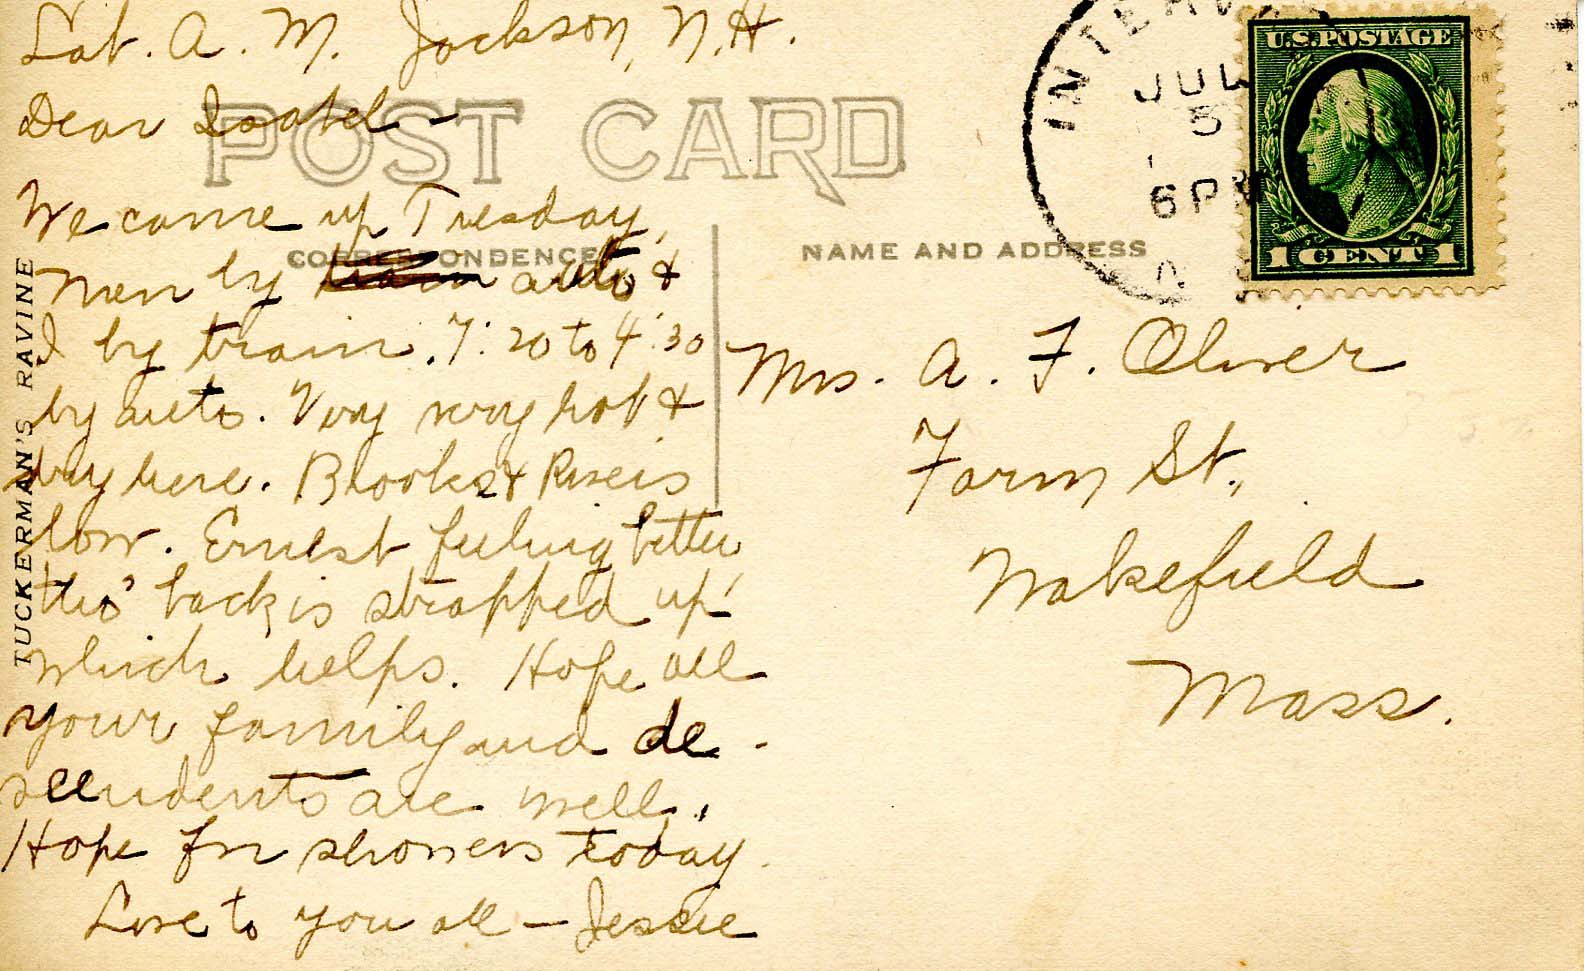 Sat. A. M. Jackson, N.H.
Dear Isabel –
We came up Tuesday,
men by train auto &
I by train. 7:20 to 4:30
by auto. Very very hot &
dry here. Brooks & Rivers
low. Ernest feeling better
tho' back is strapped up
which helps. Hope all
your family and de-
scendents are well.
Hope for showers today.
Love to you all – Jessie
POST CARD
CORRESPONDENCE
NAME AND ADDRESS
TUCKERMAN'S RAVINE
JUL
5
6 PM
U.S. POSTAGE
1 CENT 1
Mrs. A. F. Oliver
Farm St.,
Wakefield
Mass.